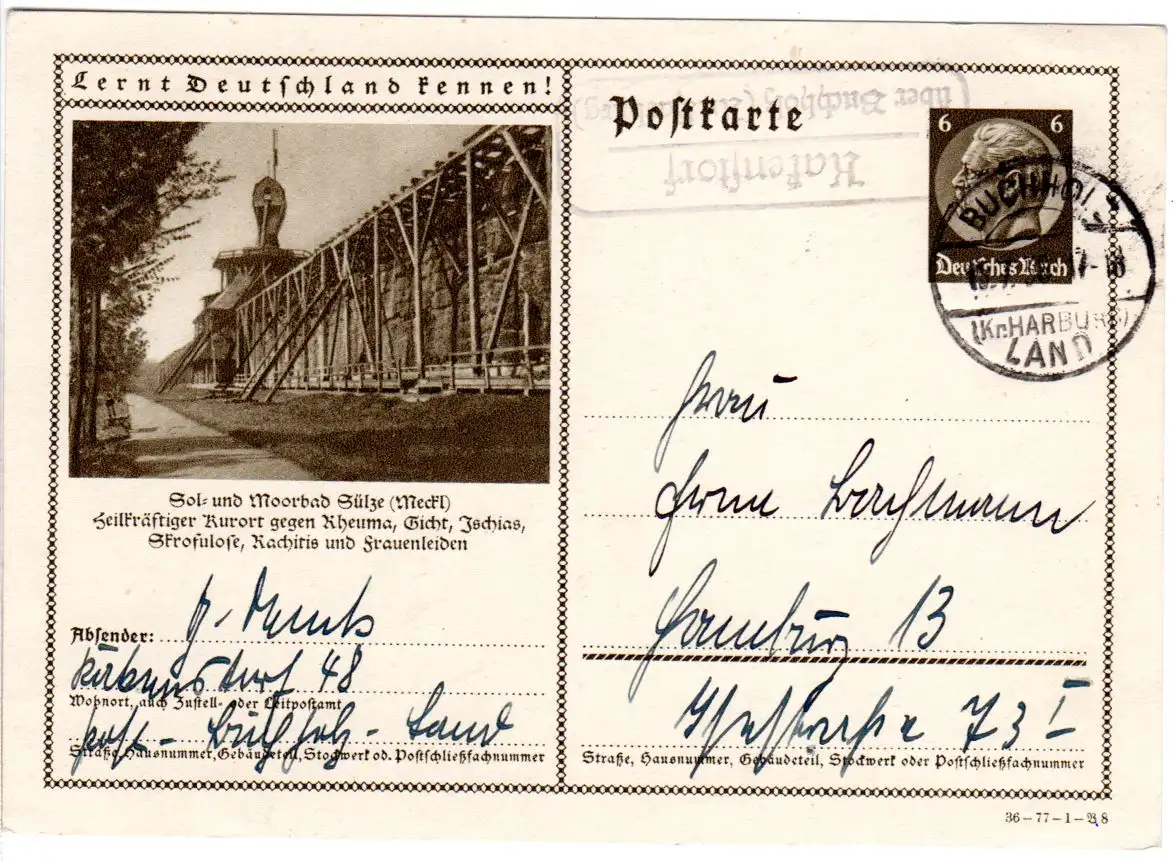 Lernt Deutschland kennen!
Sol- und Moorbad Sülze (Meckl)
Heilkräftiger Kurort gegen Rheuma, Gicht, Ischias,
Skrofulose, Rachitis und Frauenleiden
Absender:
48
Wohnort, auch Zustell- oder Leitpostamt
Post - Buchholz - Land
Straße, Hausnummer, Gebäudeteil, Stockwerk od. Postschließfachnummer
Postkarte
Kakenstorf
über Buchholz
6 6
Deutsches Reich
BUCHHOLZ
7-18
(Kr. HARBURG)
LAND
Frau
Bachmann
Hamburg 13
73 I
Straße, Hausnummer, Gebäudeteil, Stockwerk oder Postschließfachnummer
36-77-1-B 8